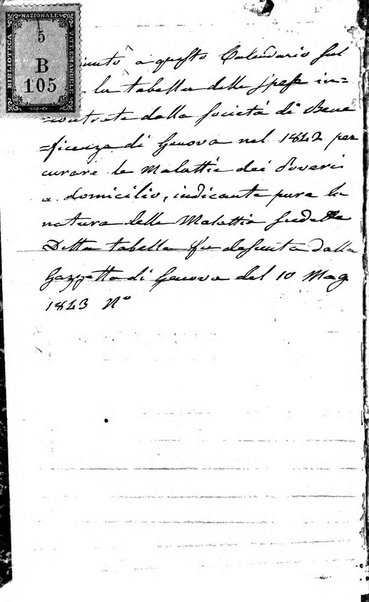 BIBLIOTECA
NAZIONALE
VITT. EMANUELE
5
B
105
a questo Calendario sul
la tabella delle spese in=
contrate dalla Società di Bene
=ficenza di Genova nel 1842 per
curare le Malattie dei Poveri
a domicilio, indicante pure la
natura delle Malattie sudette
Detta tabella fu desunta dalla
Gazzetta di Genova del 10 Mag
1843 N°